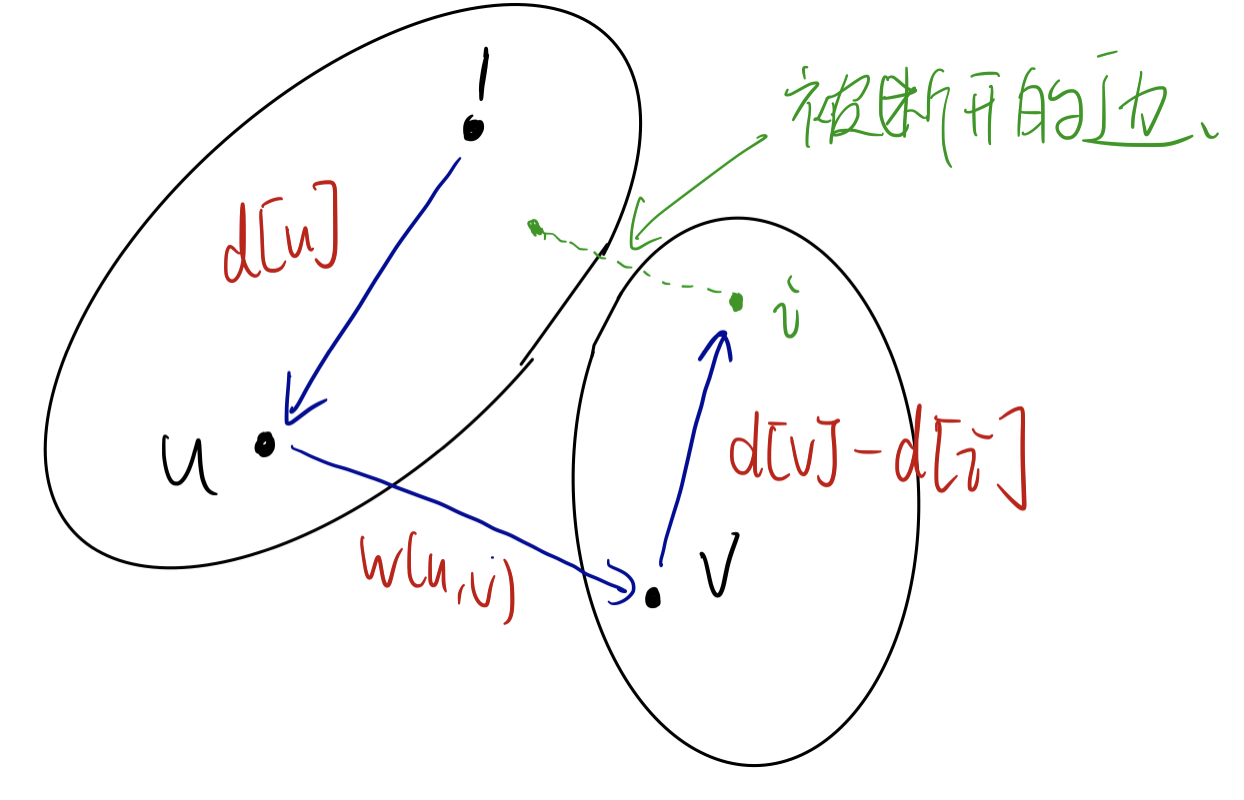 1
被断开的边、
d[u]
i
u
d[v]-d[i]
w(u,v)
v